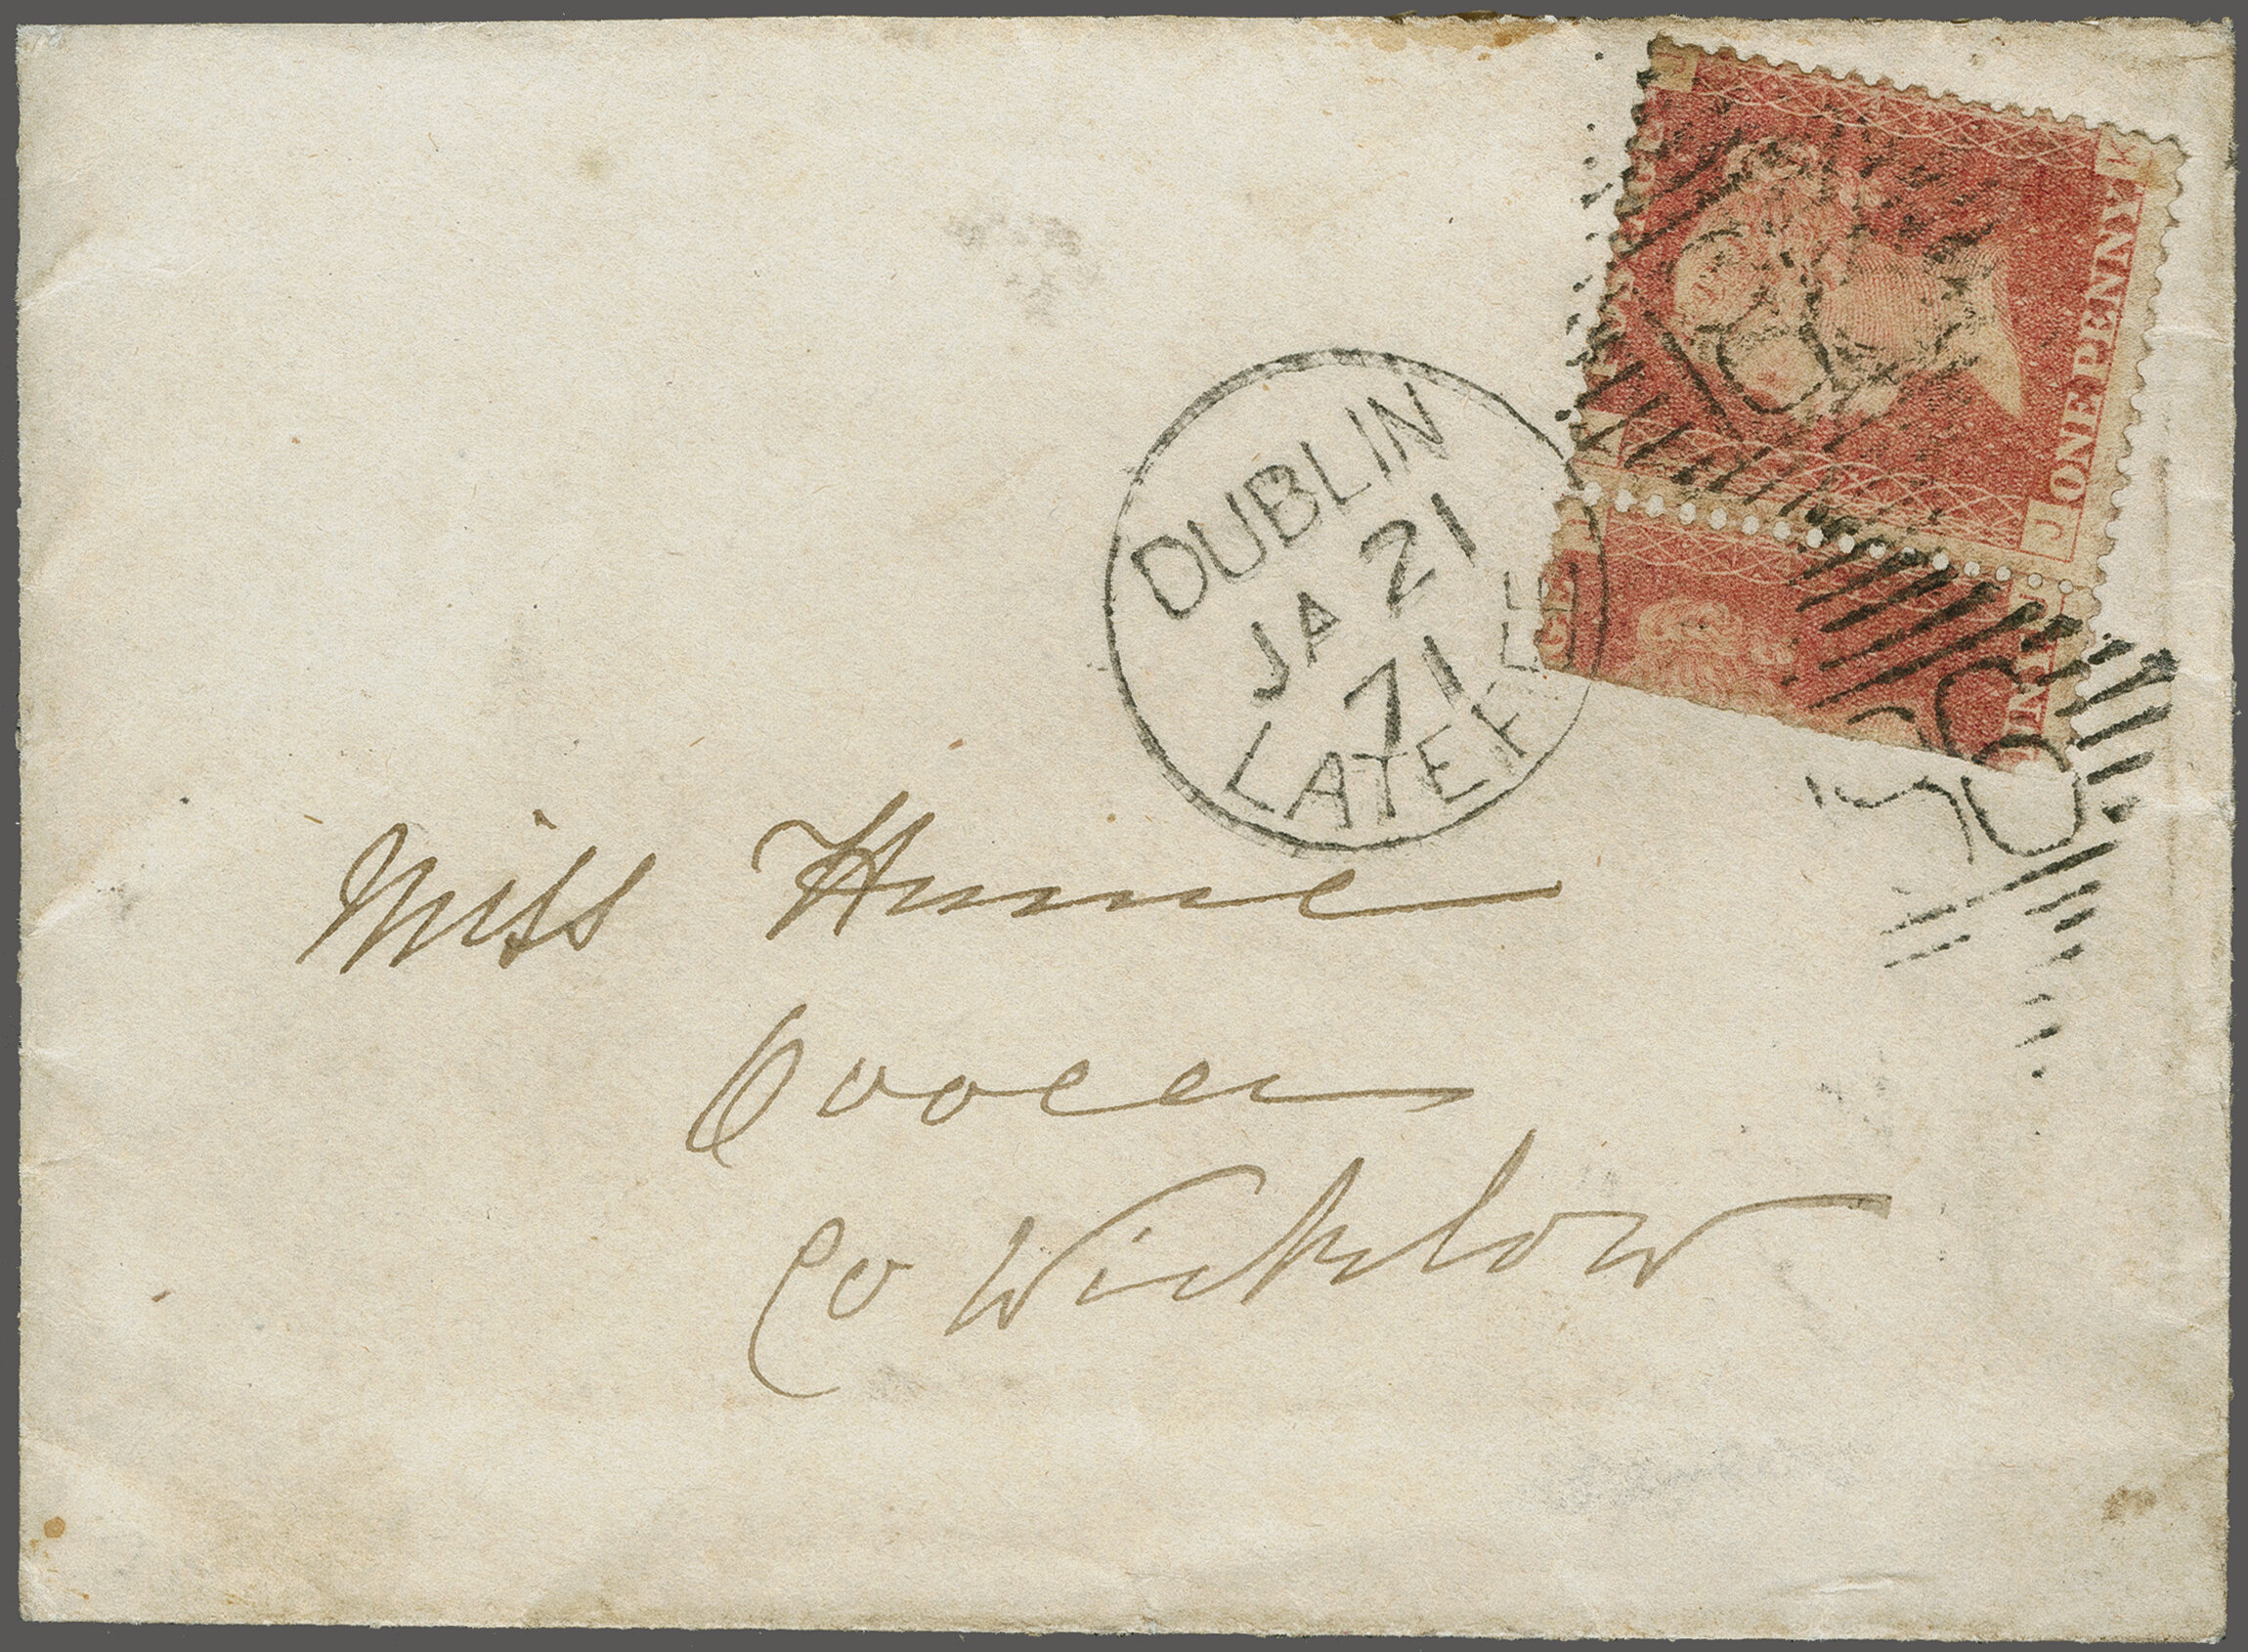 DUBLIN
JA 21
71
LATE FEE
K
ONE PENNY
J
Miss Hume
Co Wicklow